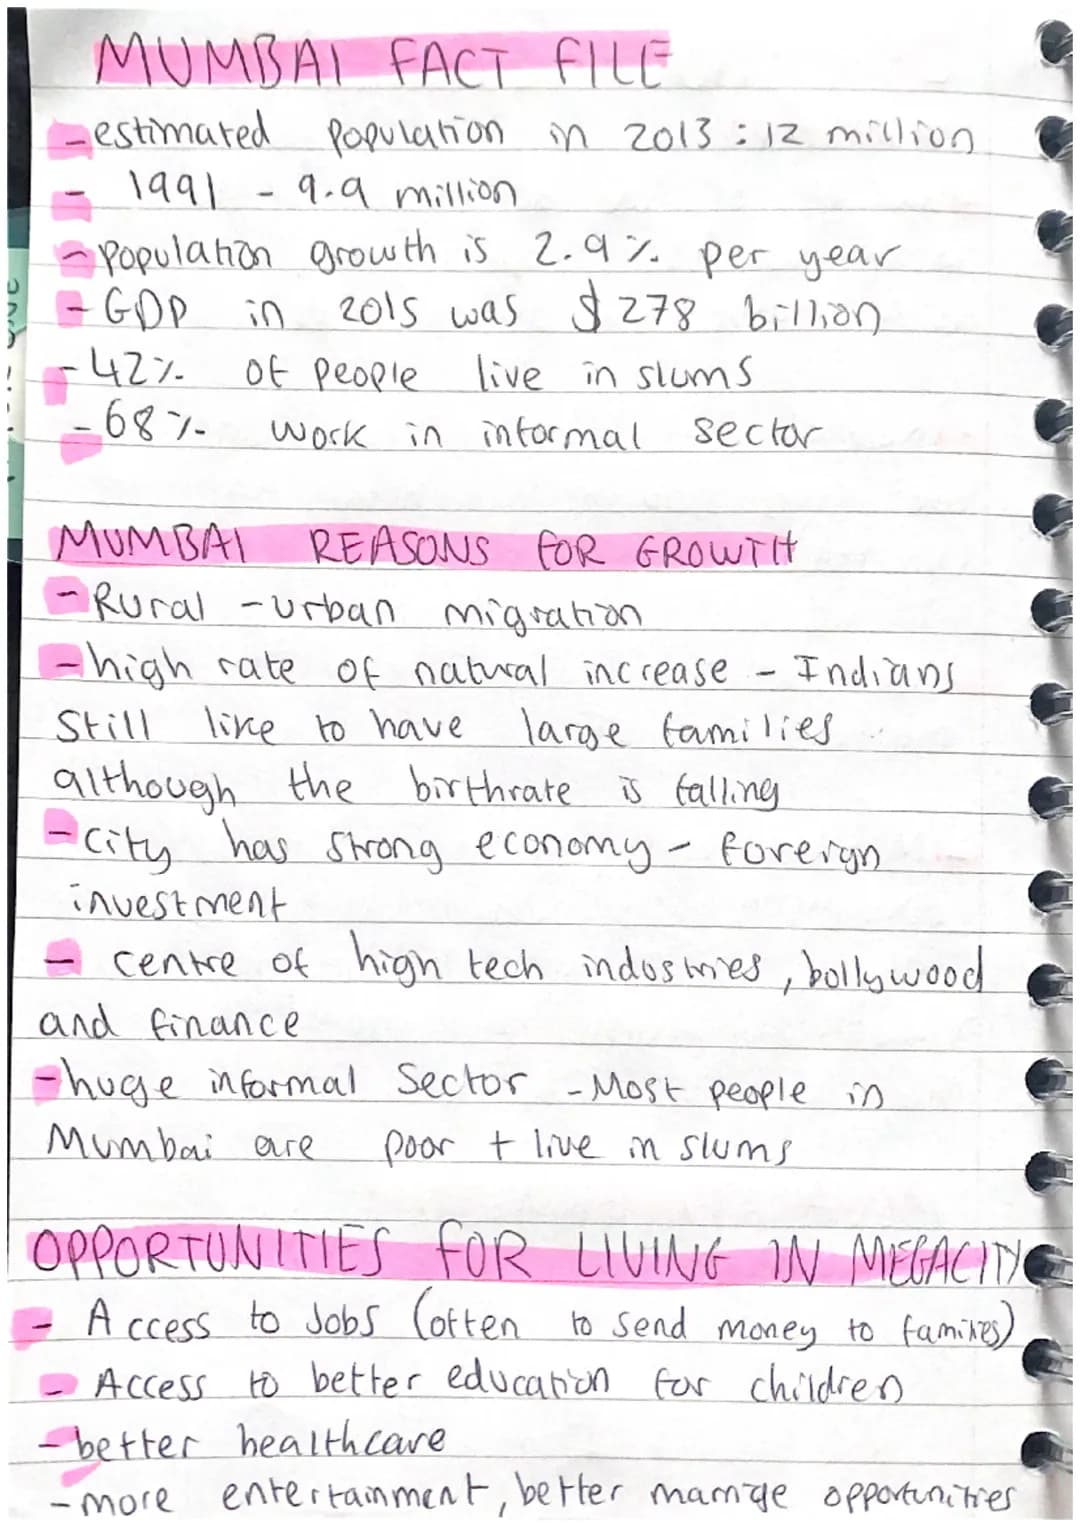 MUMBAI FACT FILE
- estimated population in 2013 : 12 million
- 1991 - 9.9 million
- population growth is 2.9% per year
- GDP in 2015 was $278 billion
- 42% of people live in slums
- 68% work in informal sector
MUMBAI REASONS FOR GROWTH
- Rural - urban migration
- high rate of natural increase - Indians
Still like to have large families
although the birthrate is falling
- city has strong economy - foreign
investment
- centre of high tech industries, bollywood
and finance
- huge informal sector - Most people in
Mumbai are poor + live in slums
OPPORTUNITIES FOR LIVING IN MEGACITY
- Access to Jobs (often to send money to families)
- Access to better education for children
- better healthcare
- more entertainment, better marriage opportunities